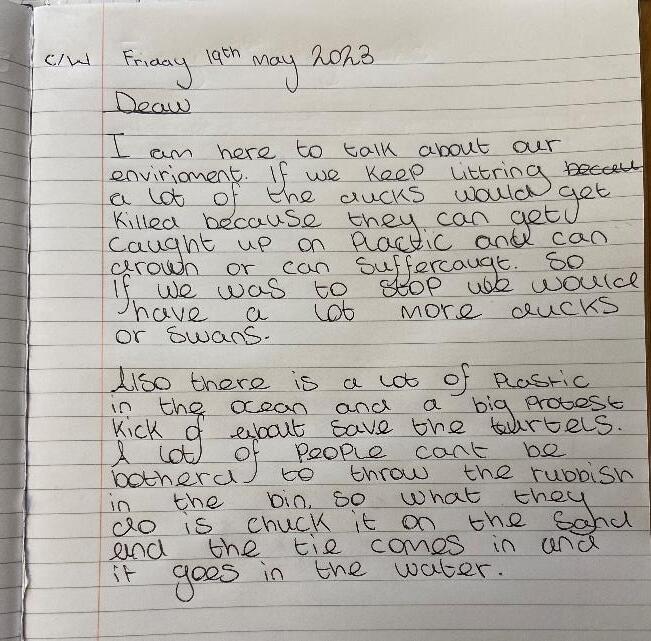 C/W Friday 19th may 2023
Deaw
I am here to talk about our
envirioment. If we keep littring becau
a lot of the ducks would get
killed because they can get
caught up on Plactic and can
drown or can suffercaugt. So
if we was to stop we would
have a lot more ducks
or swans.
Also there is a lot of Plastic
in the ocean and a big Protest
kick of about save the turtels.
A lot of people cant be
botherd to throw the rubbish
in the bin, so what they
do is chuck it on the sand
and the tie comes in and
it goes in the water.